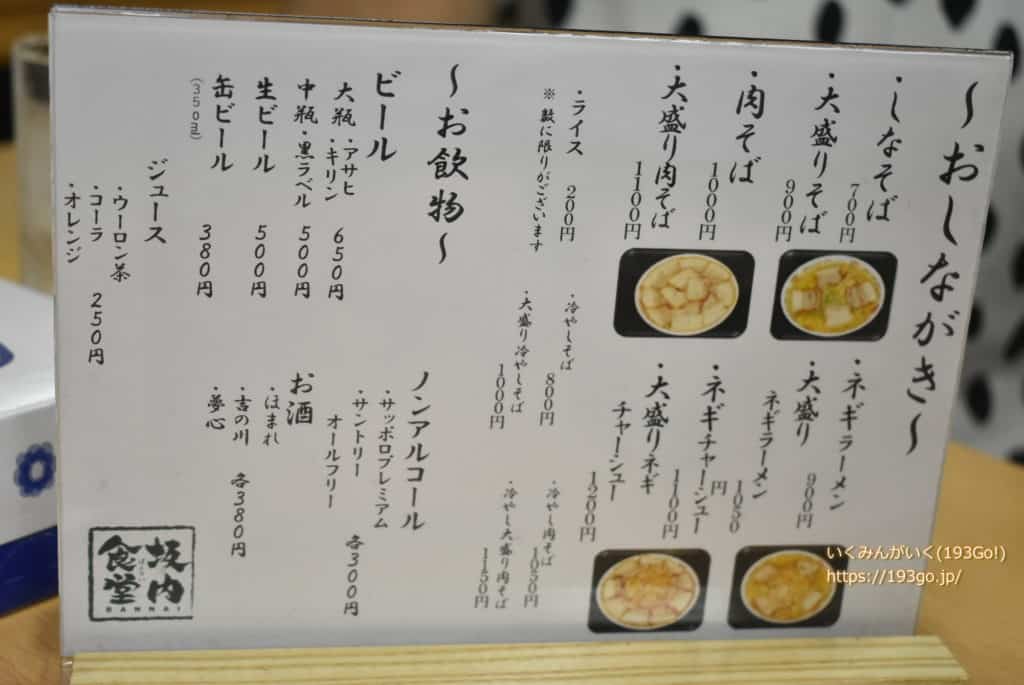 ～おしながき～
・しなそば
700円
・大盛りそば
900円
・肉そば
1000円
・大盛り肉そば
1100円
・ネギラーメン
900円
・大盛り
ネギラーメン
1050
円
・ネギチャーシュー
1100円
・大盛りネギ
チャーシュー
1200円
・ライス 200円
※数に限りがございます
・冷やしそば
800円
・大盛り冷やしそば
1000円
・冷やし肉そば
1050円
・冷やし大盛り肉そば
1150円
～お飲物～
ビール
大瓶・アサヒ
・キリン 650円
中瓶・黒ラベル 500円
生ビール 500円
缶ビール 380円
(350ml)
ジュース
・ウーロン茶
・コーラ 250円
・オレンジ
ノンアルコール
・サッポロプレミアム
・サントリー
オールフリー 各300円
お酒
・ほまれ
・吉の川 各380円
・夢心
坂内
食堂
ばんない
BANNAI
いくみんがいく(193Go!)
https://193go.jp/